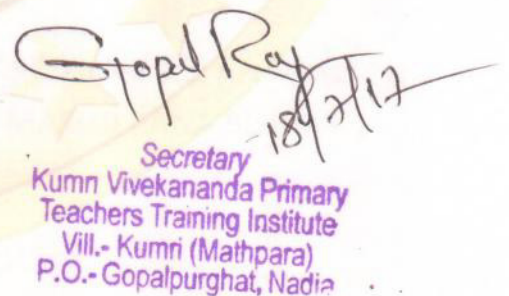 Gopal Ray
18/7/17
Secretary
Kumri Vivekananda Primary
Teachers Training Institute
Vill.- Kumri (Mathpara)
P.O.- Gopalpurghat, Nadia